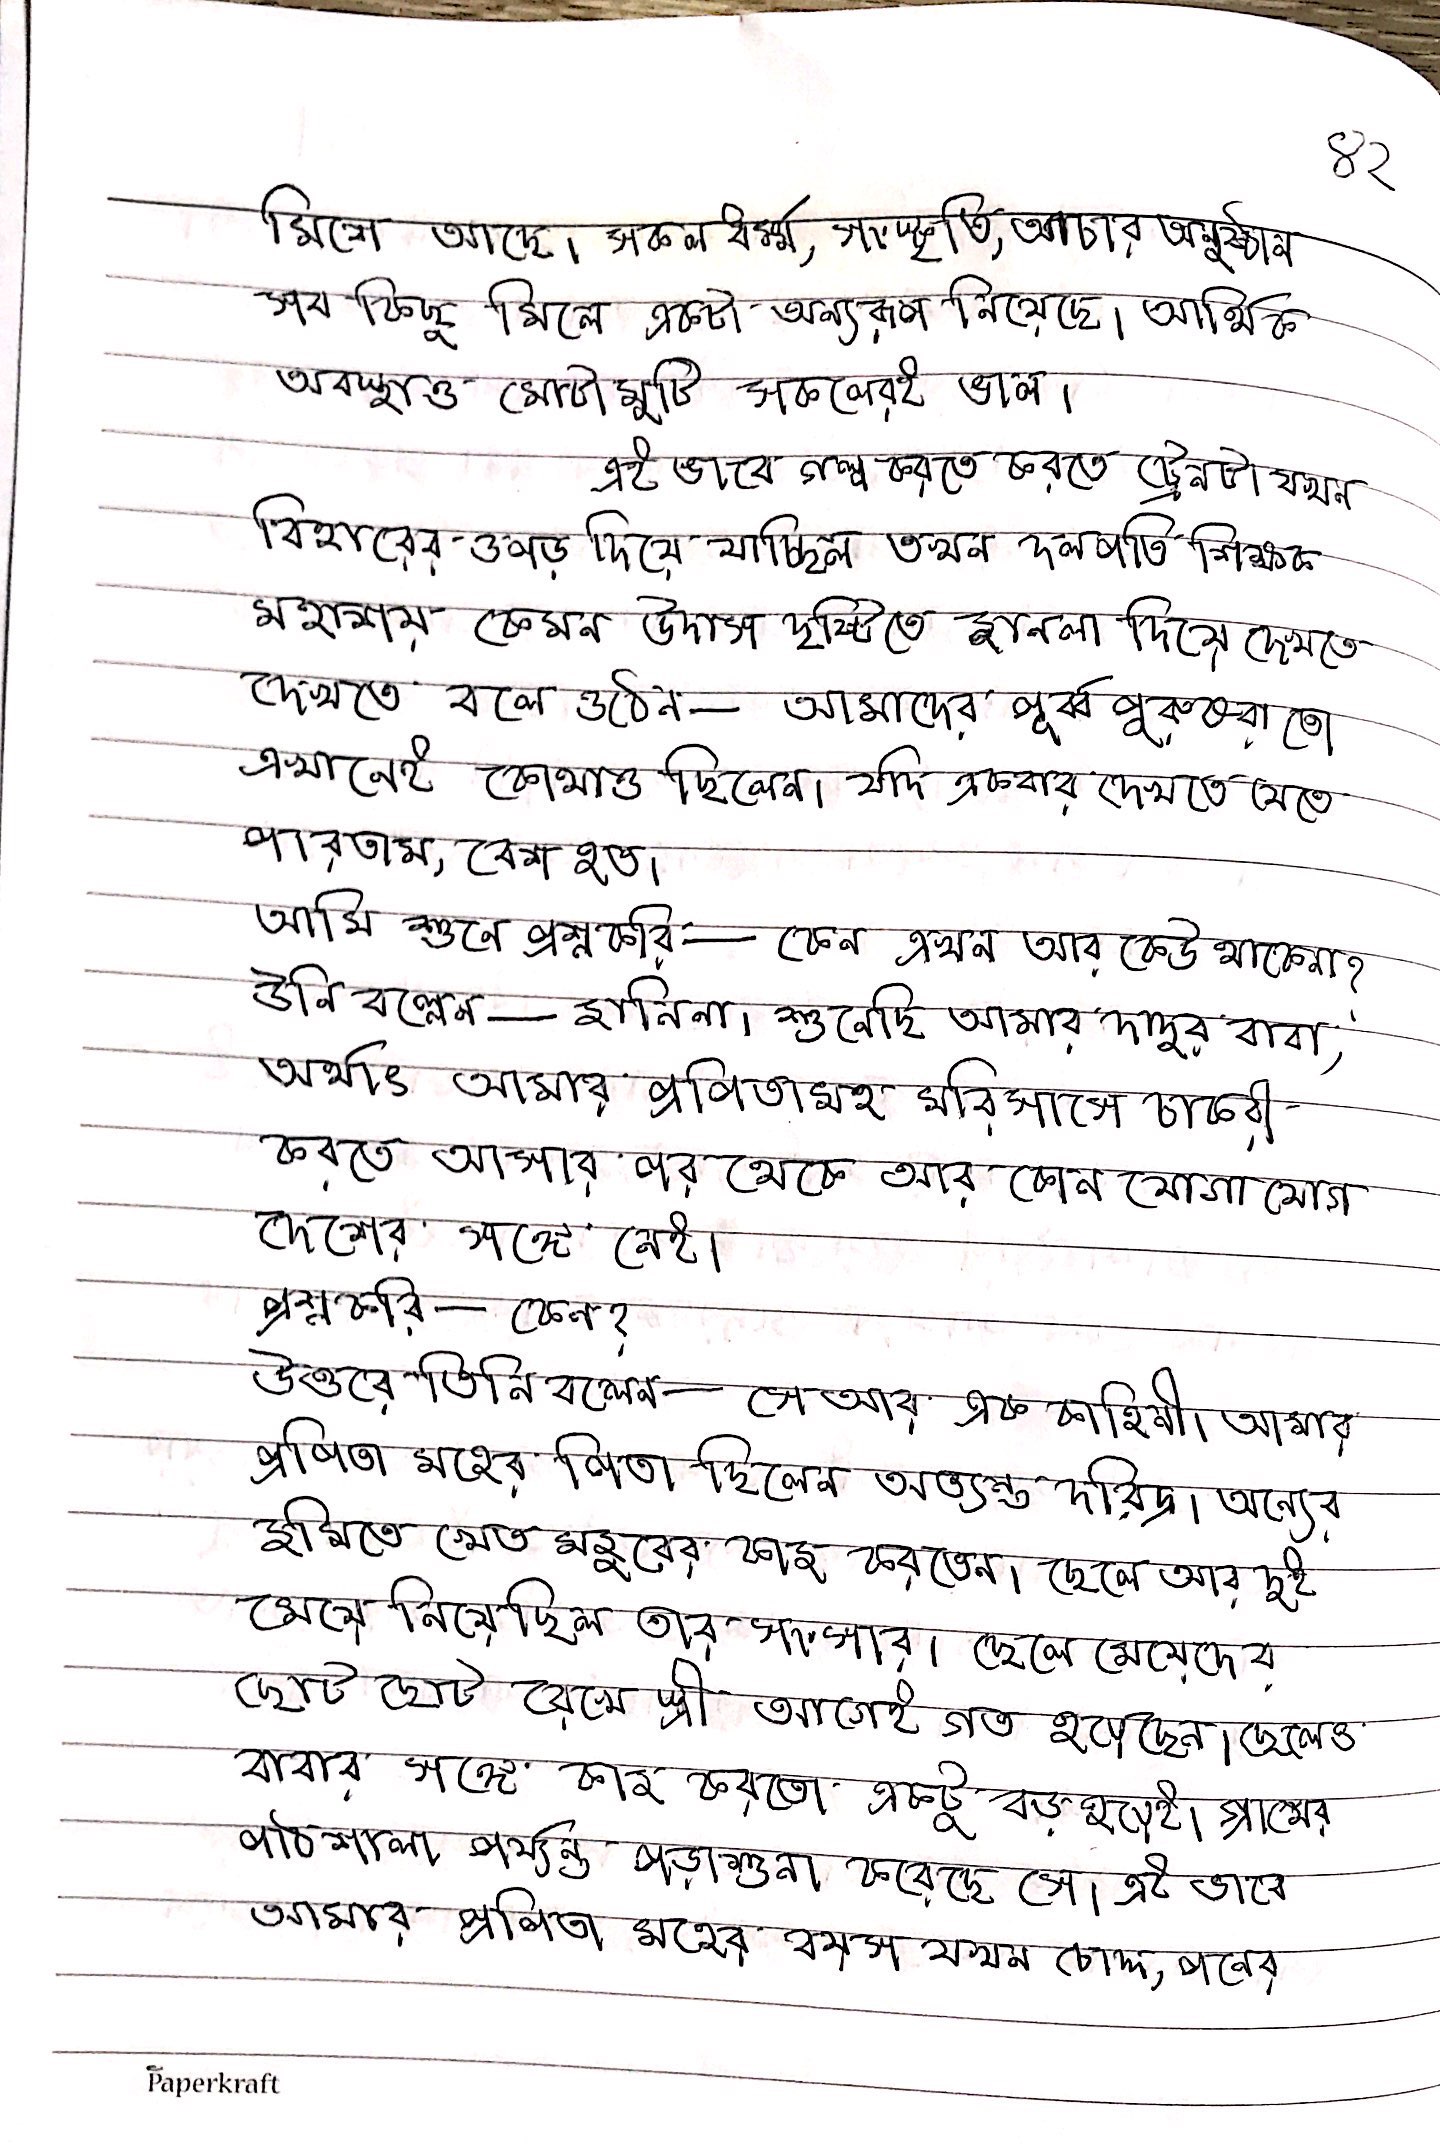 ৪২
মিশে আছে। সকল ধর্ম্ম, সংস্কৃতি, আচার অনুষ্ঠান
সব কিছু মিলে একটা অন্যরূপ নিয়েছে। আর্থিক
অবস্থাও মোটামুটি সকলেরই ভাল।
এই ভাবে গল্প করতে করতে ট্রেনটা যখন
বিহারের ওপড় দিয়ে যাচ্ছিল তখন দলপতি শিক্ষক
মহাশয় কেমন উদাস দৃষ্টিতে জানলা দিয়ে দেখতে
দেখতে বলে ওঠেন— আমাদের পূর্ব্ব পুরুষরা তো
এখানেই কোথাও ছিলেন। যদি একবার দেখতে যেতে
পারতাম, বেশ হত।
আমি শুনে প্রশ্নকরি— কেন এখন আর কেউ থাকেনা?
উনি বল্লেন— জানিনা। শুনেছি আমার দাদুর বাবা,
অর্থাৎ আমার প্রপিতামহ মরিসাসে চাকরী
করতে আসার পর থেকে আর কোন যোগাযোগ
দেশের সঙ্গে নেই।
প্রশ্নকরি— কেন?
উত্তরে তিনি বলেন— সে আর এক কাহিনী। আমার
প্রপিতা মহের পিতা ছিলেন অত্যন্ত দরিদ্র। অন্যের
জমিতে খেত মজুরের কাজ করতেন। ছেলে আর দুই
মেয়ে নিয়ে ছিল তার সংসার। ছেলে মেয়েদের
ছোট ছোট রেখে স্ত্রী আগেই গত হয়েছেন। ছেলেও
বাবার সঙ্গে কাজ করতো একটু বড় হয়েই। গ্রামের
পাঠশালা পর্যন্ত পড়াশুনা করেছে সে। এই ভাবে
আমার প্রপিতা মহের বয়স যখন চোদ্দ, পনের
Paperkraft